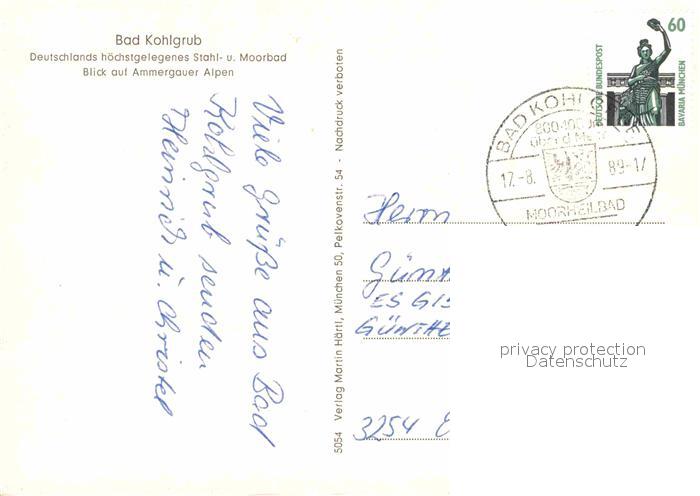 Bad Kohlgrub
Deutschlands höchstgelegenes Stahl- u. Moorbad
Blick auf Ammergauer Alpen
Viele Grüße aus Bad
Kohlgrub senden
Heinrich u. Christel
5054 Verlag Martin Härtl, München 50, Pelkovenstr. 54 - Nachdruck verboten
60
DEUTSCHE BUNDESPOST
BAVARIA MÜNCHEN
BAD KOHLG
17.-8. 89-17
MOORHEILBAD
Herrn
GÜN
ES GIS
GÜNTHE
3254
privacy protection
Datenschutz